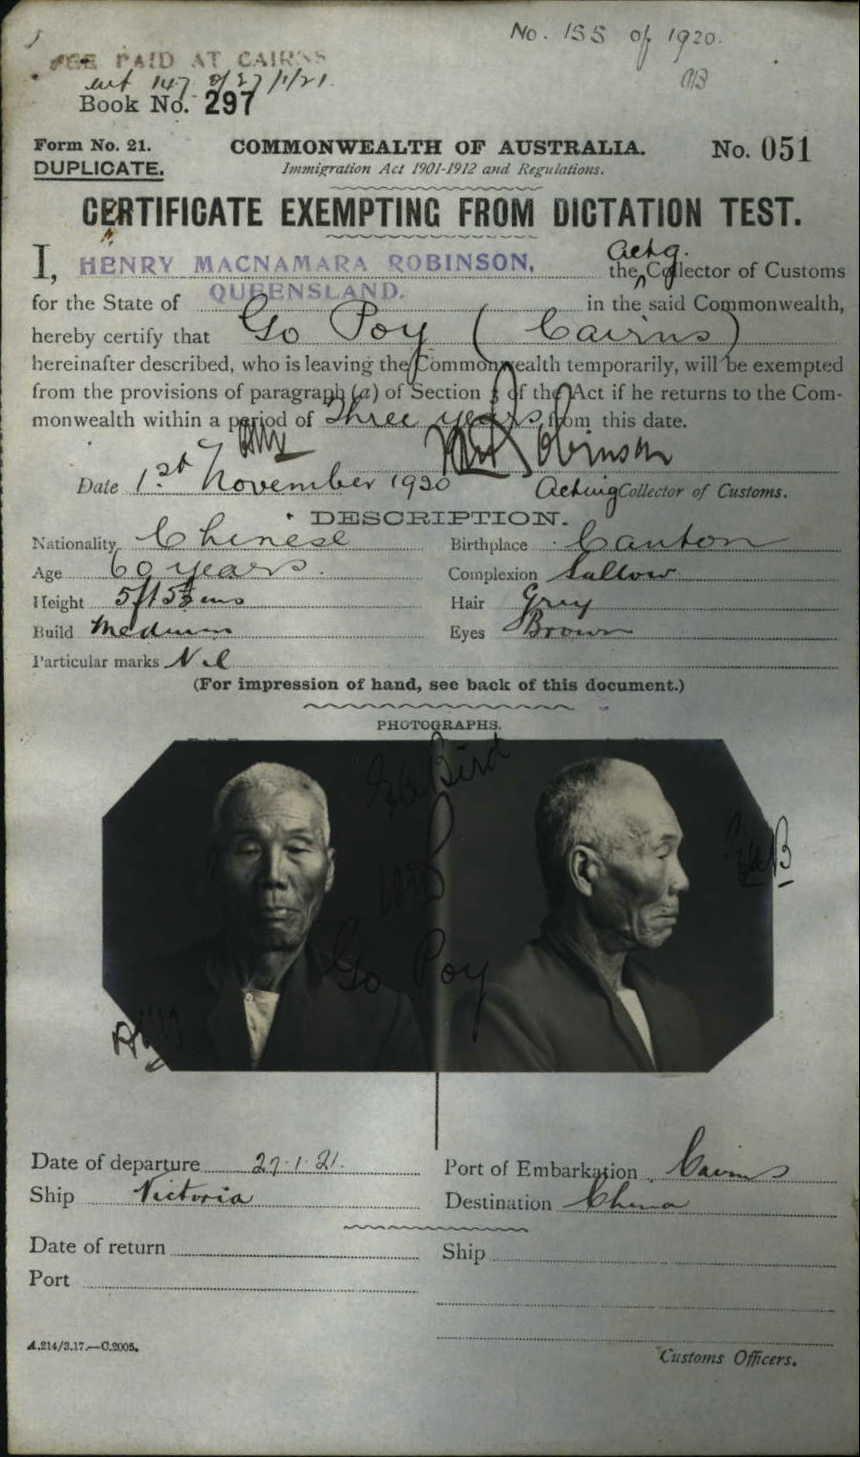 No. 155 of 1920.
FEE PAID AT CAIRNS
147 27/1/21.
Book No. 297
Form No. 21.
COMMONWEALTH OF AUSTRALIA.
No. 051
DUPLICATE.
Immigration Act 1901-1912 and Regulations.
CERTIFICATE EXEMPTING FROM DICTATION TEST.
I, HENRY MACNAMARA ROBINSON, the Actg. Collector of Customs
for the State of QUEENSLAND. in the said Commonwealth,
hereby certify that Go Poy (Cairns)
hereinafter described, who is leaving the Commonwealth temporarily, will be exempted
from the provisions of paragraph (a) of Section 3 of the Act if he returns to the Com-
monwealth within a period of Three years from this date.
Robinson
Date 1st November 1920 Acting Collector of Customs.
DESCRIPTION.
Nationality Chinese Birthplace Canton
Age 60 years. Complexion Sallow
Height 5ft 5 ins Hair Grey
Build Medium Eyes Brown
Particular marks Nil
(For impression of hand, see back of this document.)
PHOTOGRAPHS.
Bird
Go Poy
Date of departure 27.1.21. Port of Embarkation Cairns
Ship Victoria Destination China
Date of return Ship
Port
A.214/3.17.—C.2005.
Customs Officers.